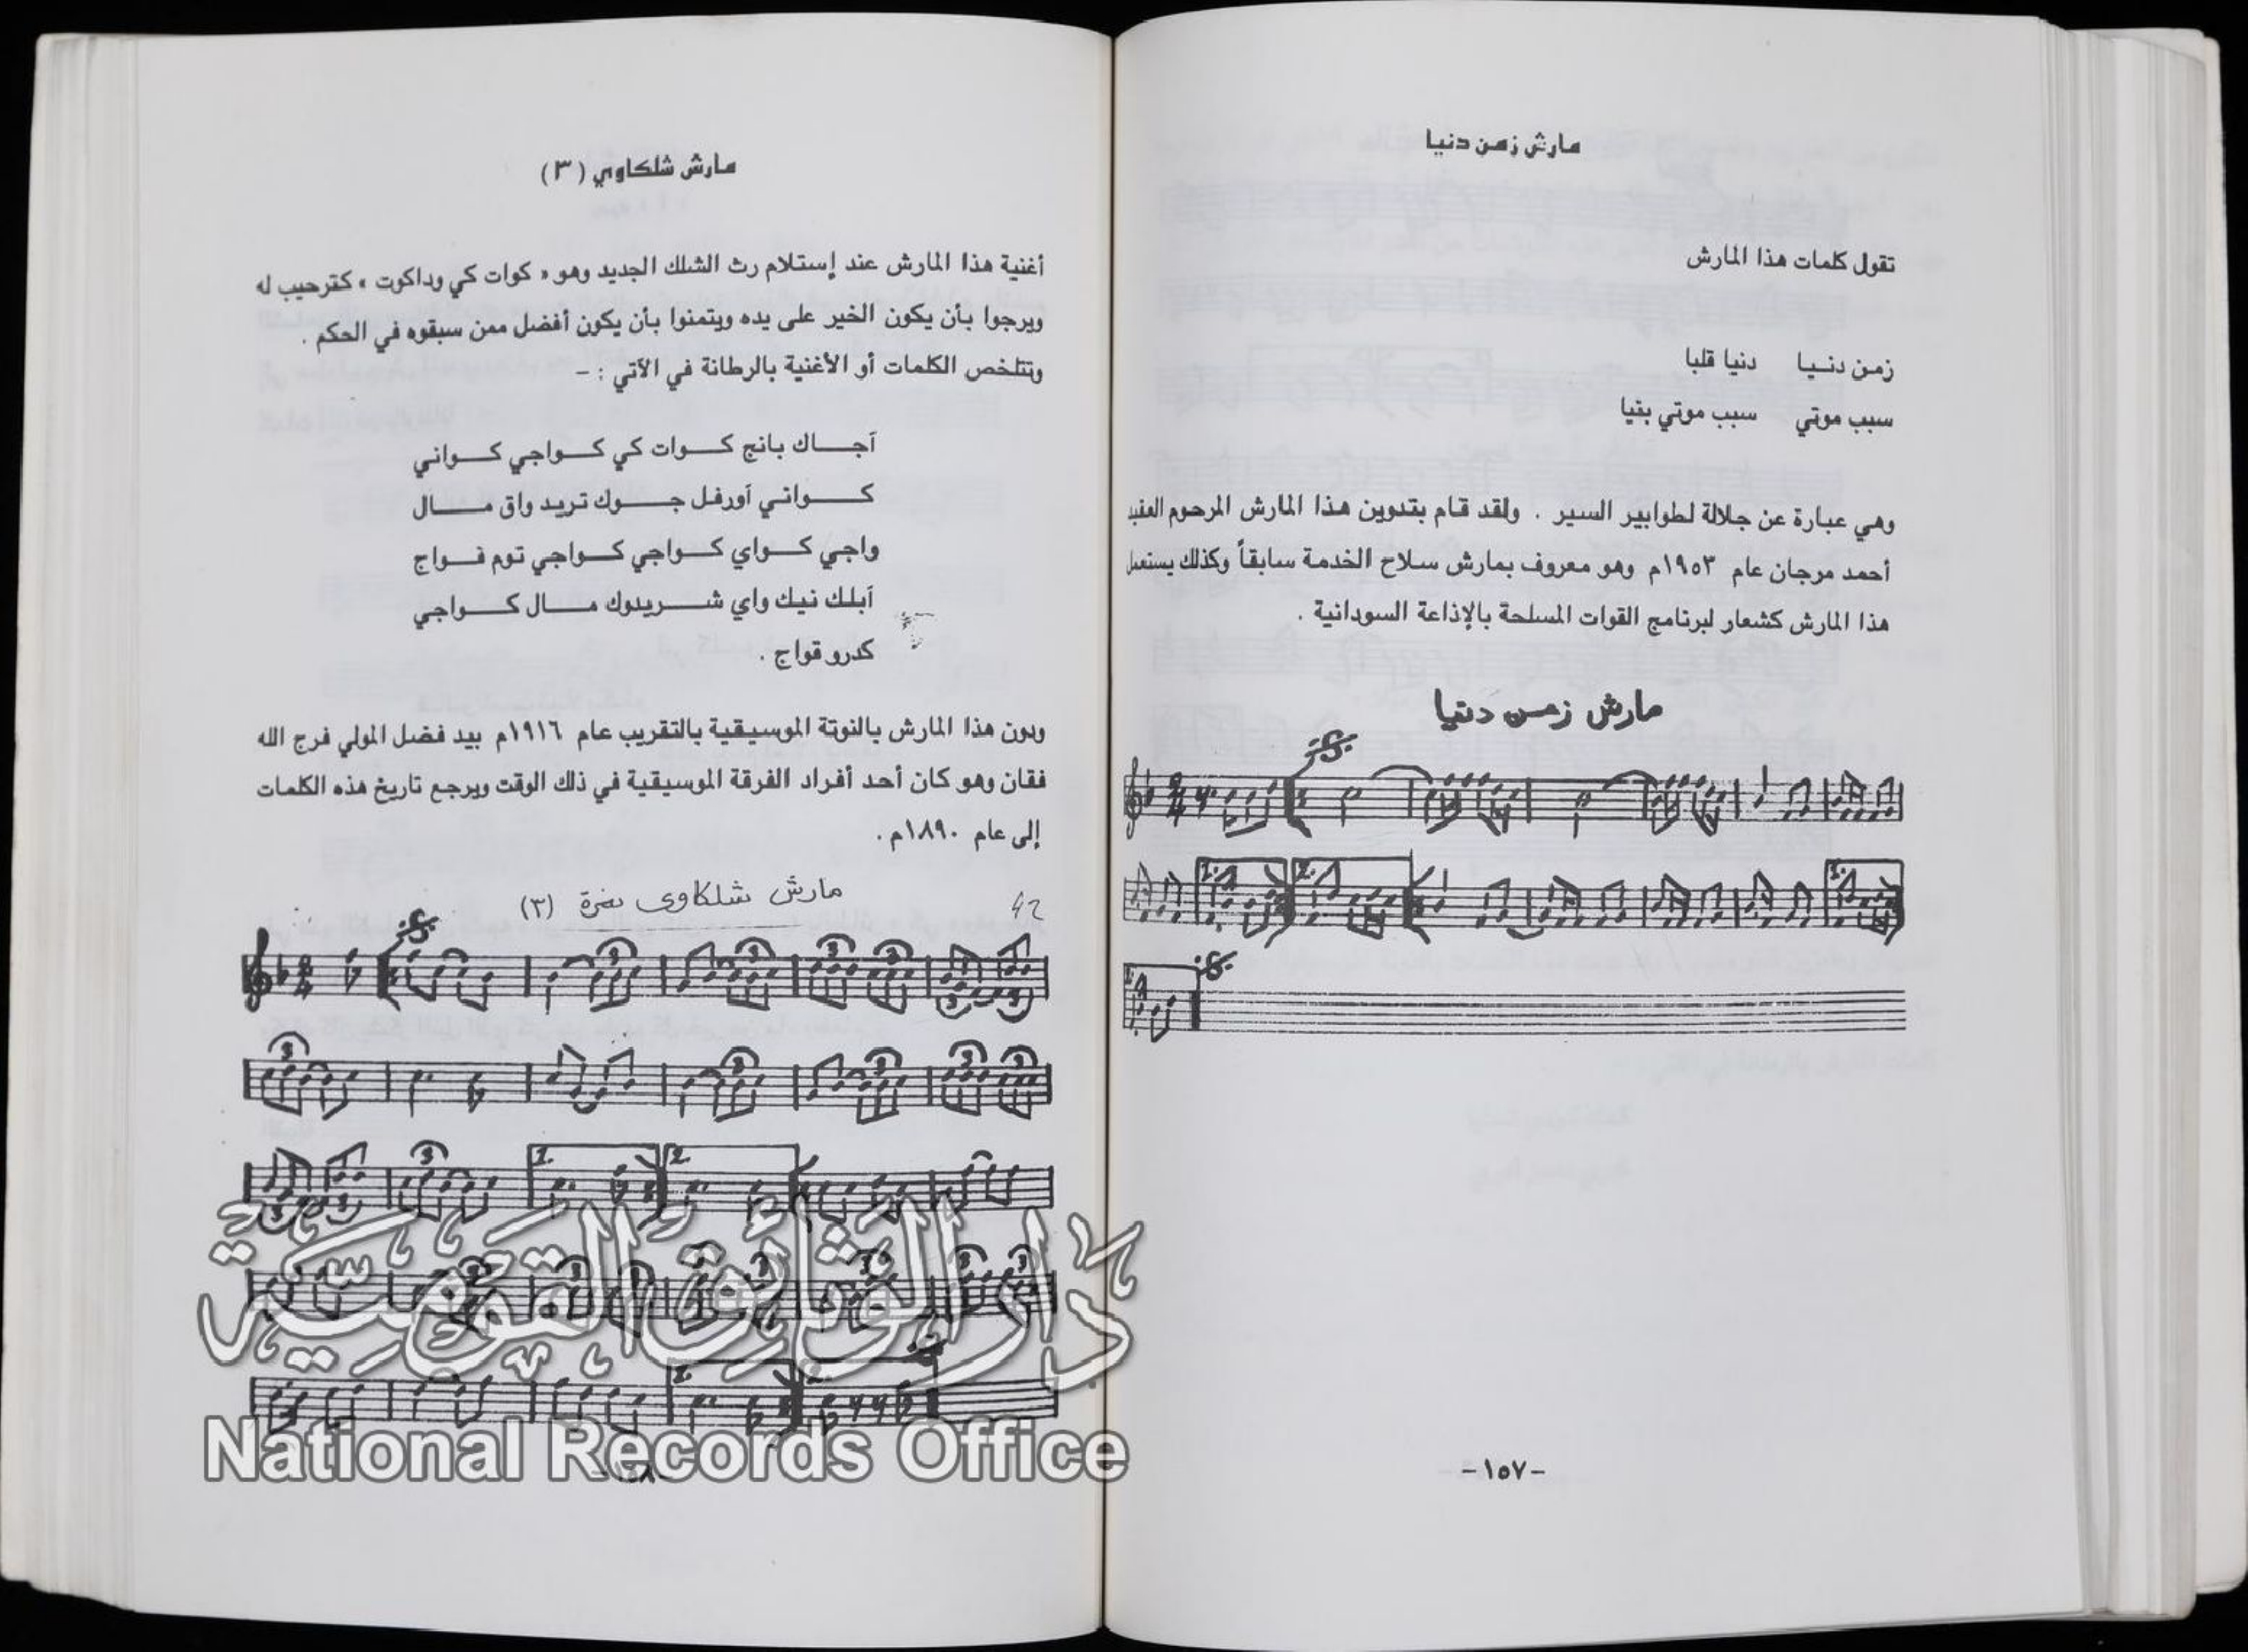 مارش زمن دنيا
تقول كلمات هذا المارش
زمن دنـيا دنيا قلبا
سبب موتي سبب موتي بقيا
وهي عبارة عن جلالة لطوابير السير . ولقد قام بتدوين هذا المارش المرحوم العقيد
أحمد مرجان عام ١٩٥٣م وهو معروف بمارش سلاح الخدمة سابقاً وكذلك يستعمل
هذا المارش كشعار لبرنامج القوات المسلحة بالإذاعة السودانية .
مارش زمن دنيا
1.
2.
-١٥٧-
مارش شلكاوي (٣)
أغنية هذا المارش عند إستلام رث الشلك الجديد وهو « كوات كي وداكوت » كترحيب له
ويرجوا بأن يكون الخير على يده ويتمنوا بأن يكون أفضل ممن سبقوه في الحكم .
وتتلخص الكلمات أو الأغنية بالرطانة في الآتي : -
آجـــاك بانج كــوات كي كــواجي كــواني
كـــواني آورفل جـــوك تريد واق مـــال
واجي كــواي كــواجي كــواجي توم فــواج
آبلك نيك واي شـــريدوك مـــال كـــواجي
كدرو قواج .
ودون هذا المارش بالنوتة الموسيقية بالتقريب عام ١٩١٦م بيد فضل المولي فرج الله
فقان وهو كان أحد أفراد الفرقة الموسيقية في ذلك الوقت ويرجع تاريخ هذه الكلمات
إلى عام ١٨٩٠م .
مارش شلكاوى نمرة (٣)
1.
2.
دار الوثائق القومية
National Records Office
-١٥٨-